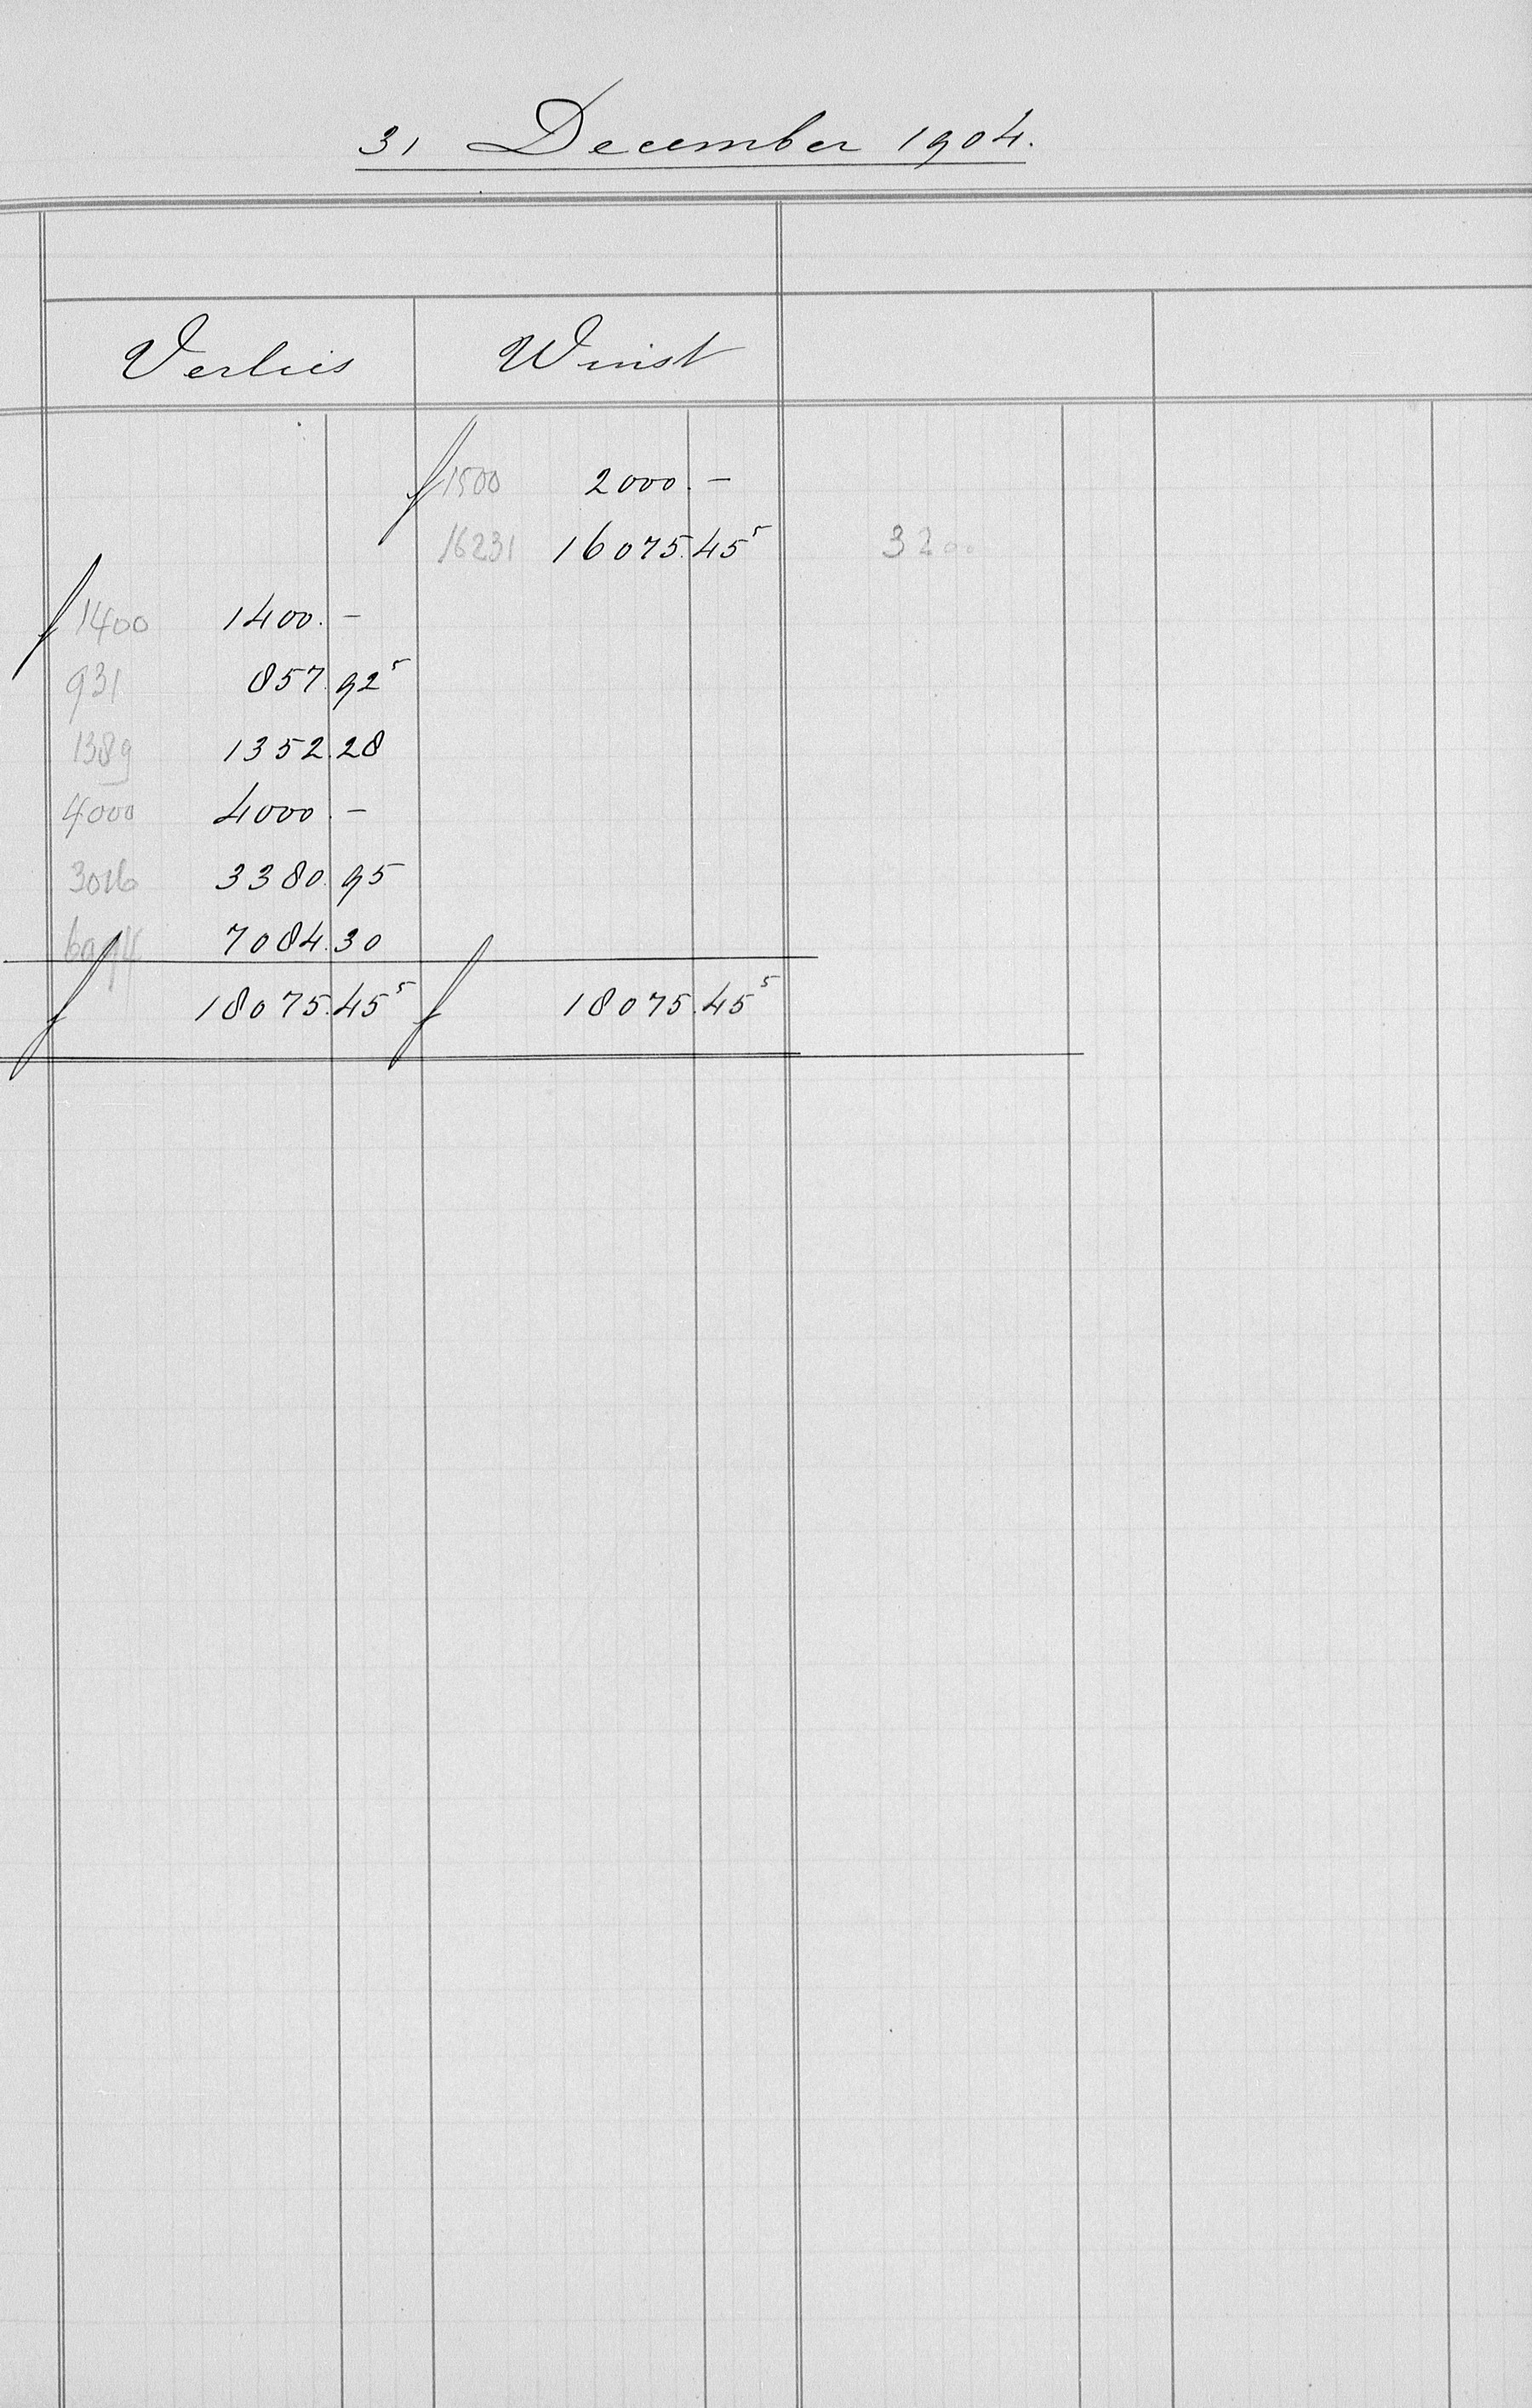 31 December 1904.
Verlies Winst
ƒ 1500 2000.–
16231 16075.45⁵ 3200
ƒ 1400 1400.–
931 857.92⁵
1389 1352.28
4000 4000.–
3016 3380.95
7084.30
ƒ 18075.45⁵ ƒ 18075.45⁵